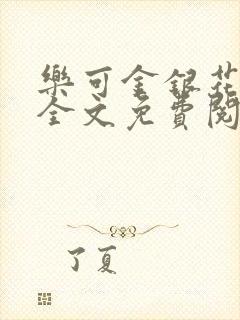 樂可金銀花
全文免費閱
了夏